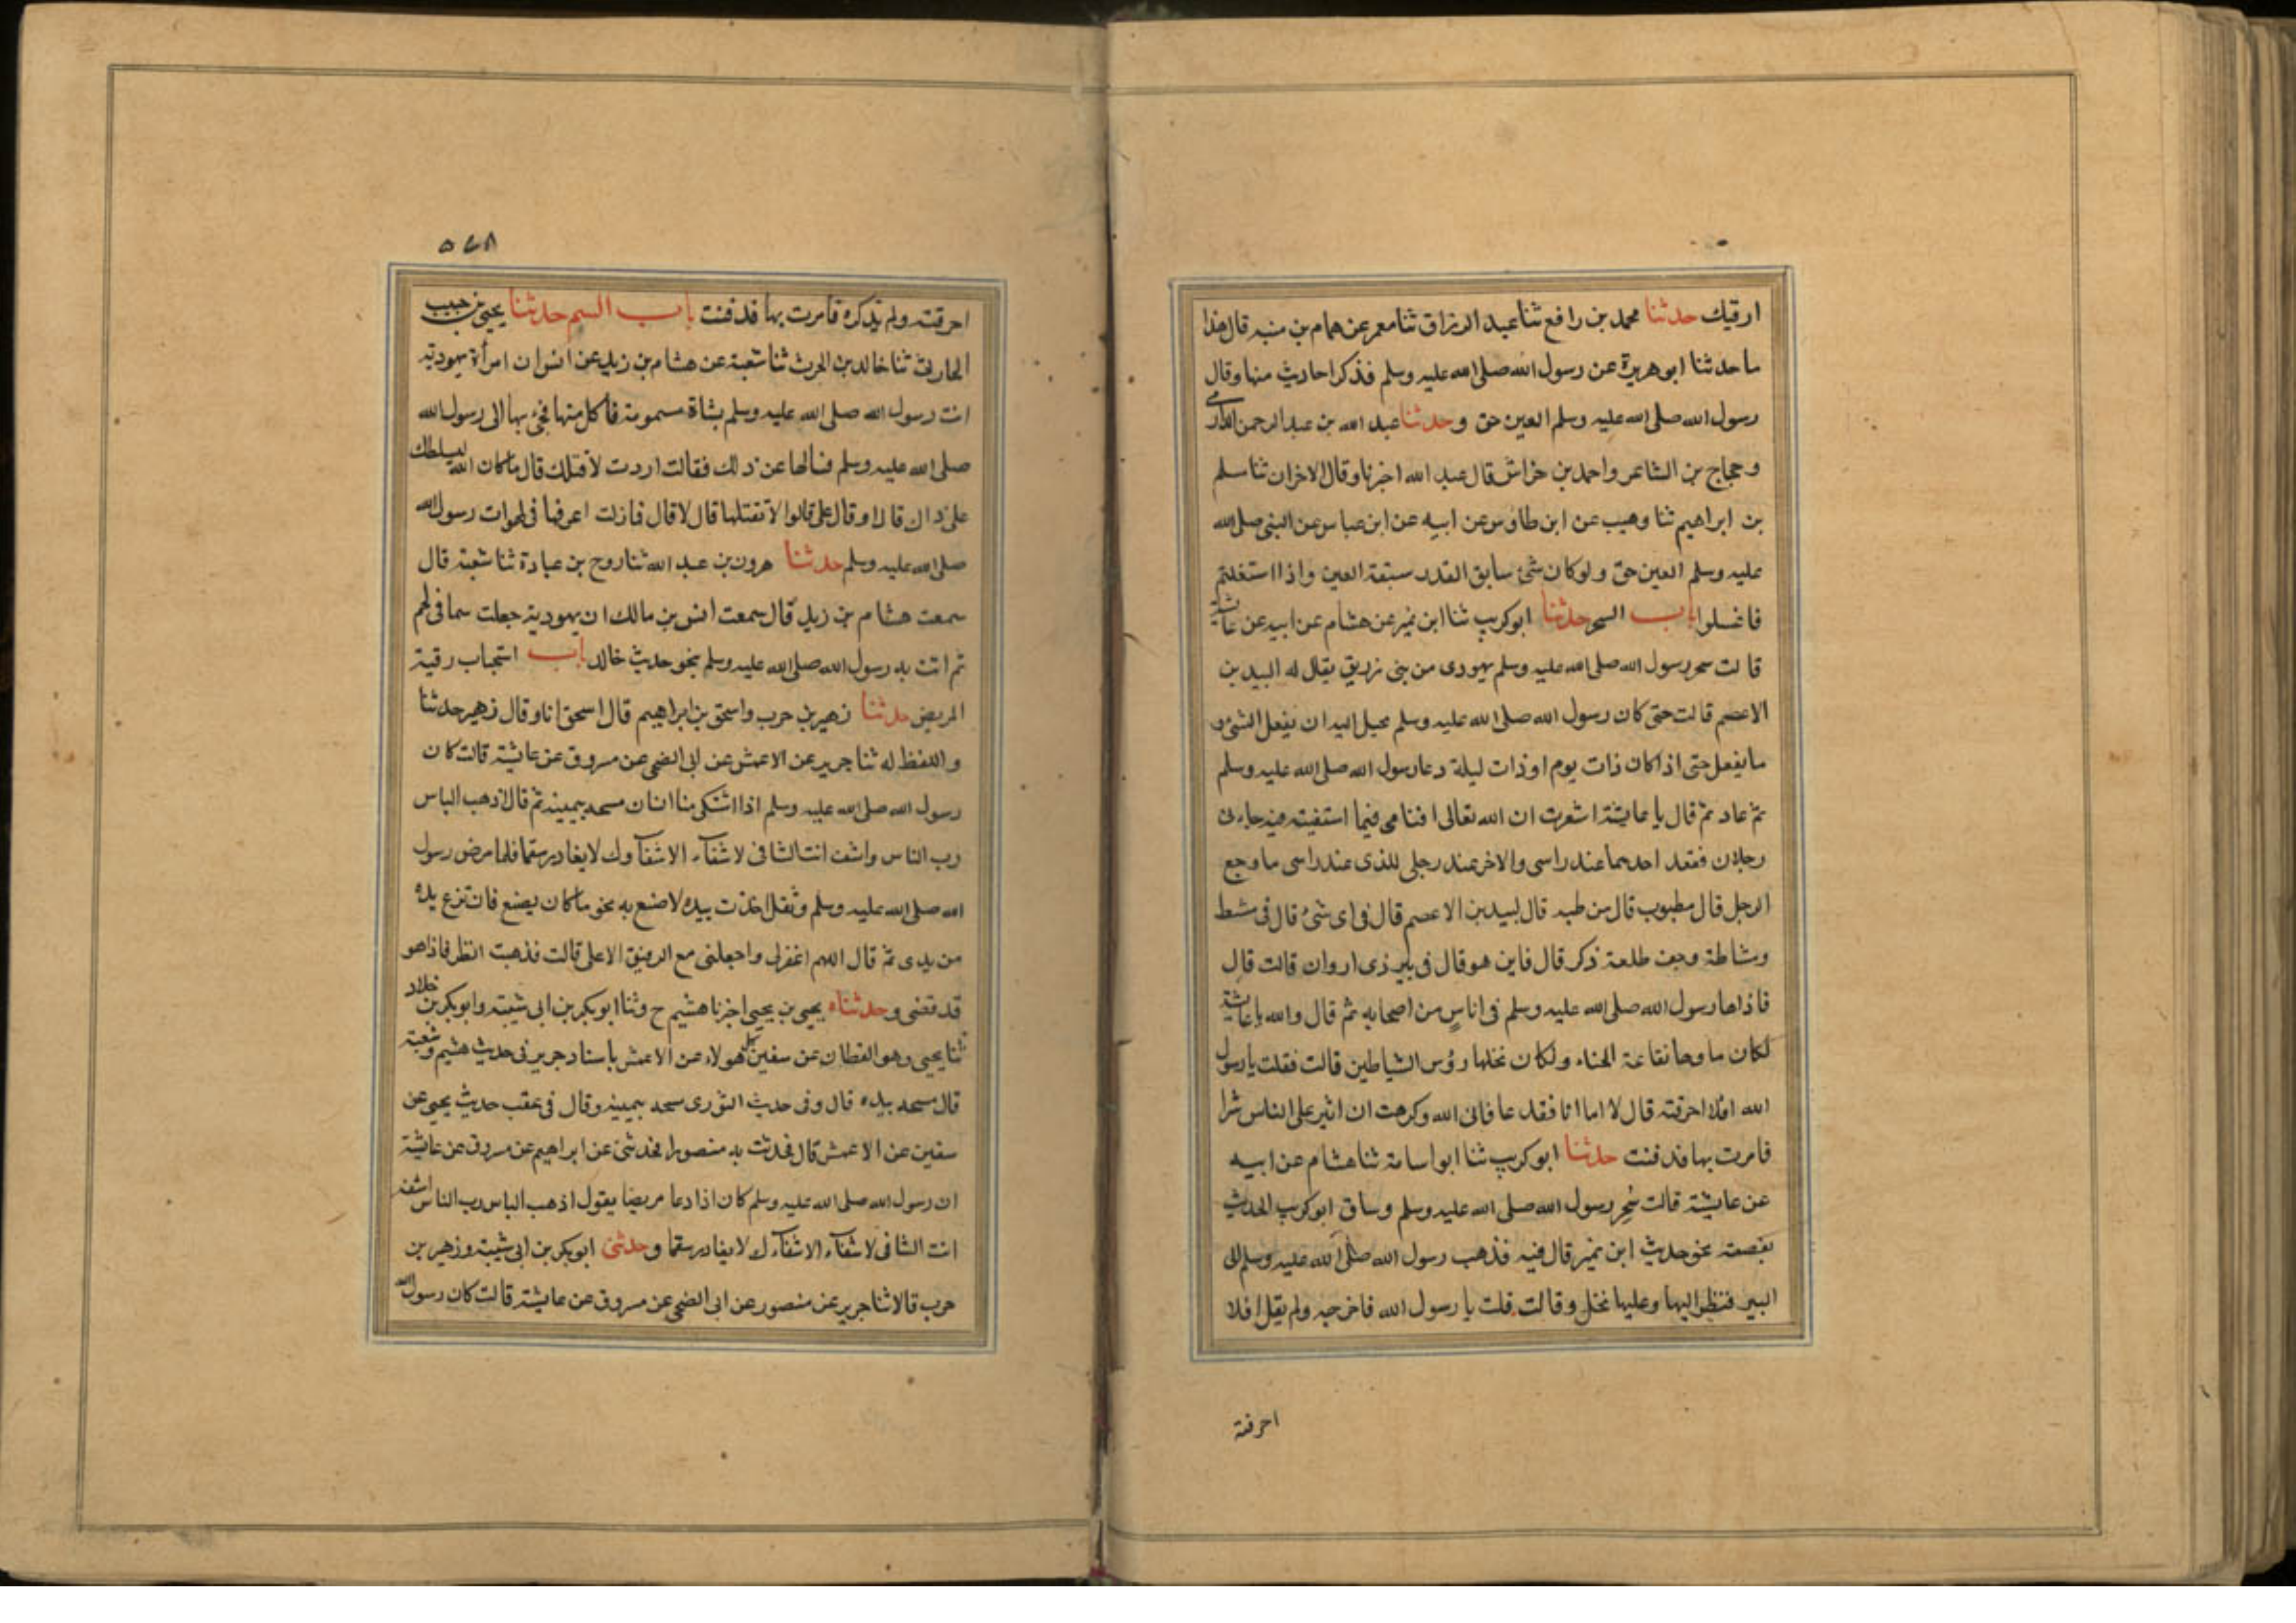 ارقيك حدثنا محمد بن رافع ثنا عبد الرزاق ثنا معمر عن همام بن منبه قال هذا
ما حدثنا ابو هريرة عن رسول الله صلى الله عليه وسلم فذكر احاديث منها وقال
رسول الله صلى الله عليه وسلم العين حق وحدثنا عبد الله بن عبد الرحمن الدارمى
وحجاج بن الشاعر واحمد بن خراش قال عبد الله اخبرنا وقال الاخران ثنا سلم
بن ابراهيم ثنا وهيب عن ابن طاوس عن ابيه عن ابن عباس عن النبى صلى الله
عليه وسلم العين حق ولو كان شئ سابق القدر سبقته العين واذا استغلتم
فاغسلوا باب السحر حدثنا ابو كريب ثنا ابن نمير عن هشام عن ابيه عن عائشة
قالت سحر رسول الله صلى الله عليه وسلم يهودى من بنى زريق يقال له البيد بن
الاعصم قالت حتى كان رسول الله صلى الله عليه وسلم يخيل اليه ان يفعل الشئ و
ما يفعل حتى اذا كان ذات يوم او ذات ليلة دعا رسول الله صلى الله عليه وسلم
ثم عاد ثم قال يا عايشة اشعرت ان الله تعالى افتامى فيما استفيته فيه جاءنى
رجلان فقعد احدهما عند راسى والاخر عند رجلى للذى عند راسى ما وجع
الرجل قال مطبوب قال من طبه قال لبيد بن الاعصم قال فى اى شئ قال فى مشط
ومشاطة وجف طلعة ذكر قال فاين هو قال فى بير ذى اروان قالت قال
فاذاها رسول الله صلى الله عليه وسلم فى اناس من اصحابه ثم قال والله يا عائشة
لكان ماوها نقاعة الحناء ولكان نخلها رؤس الشياطين قالت فقلت يا رسول
الله افلا احرقته قال لا اما انا فقد عافانى الله وكرهت ان اثير على الناس شرا
فامرت بها فدفنت حدثنا ابو كريب ثنا ابو اسامة ثنا هشام عن ابيه
عن عايشة قالت سُحِر رسول الله صلى الله عليه وسلم وساق ابو كريب الحديث
بقصته نحو حديث ابن نمير قال فيه فذهب رسول الله صلى الله عليه وسلم الى
البير فنظر اليها وعليها نخل وقالت قلت يا رسول الله فاخرجه ولم يقل افلا
احرقته
٥٤٨
احرقته ولم يذكره فامرت بها فدفنت باب السم حدثنا يحيى بن حبيب
الحارثى ثنا خالد بن الحرث ثنا شعبة عن هشام بن زيد عن انس ان امرأة يهودية
اتت رسول الله صلى الله عليه وسلم بشاة مسمومة فأكل منها فجئ بها الى رسول الله
صلى الله عليه وسلم فسالها عن ذلك فقالت اردت لاقتلك قال ما كان الله ليسلطك
على ذاك قال او قال على قالوا لا تقتلها قال لا قال فما زلت اعرفها فى لهوات رسول الله
صلى الله عليه وسلم حدثنا هرون بن عبد الله ثنا روح بن عبادة ثنا شعبة قال
سمعت هشام بن زيد قال سمعت انس بن مالك ان يهودية جعلت سما فى لحم
ثم اتت به رسول الله صلى الله عليه وسلم بنحو حديث خالد باب استحباب رقية
المريض حدثنا زهير بن حرب واسحق بن ابراهيم قال اسحق انا وقال زهير حدثنا
واللفظ له ثنا جرير عن الاعمش عن ابى الضحى عن مسروق عن عايشة قالت كان
رسول الله صلى الله عليه وسلم اذا اشتكى منا انسان مسحه بيمينه ثم قال اذهب الباس
رب الناس واشف انت الشافى لا شفآء الا شفآوك لا يغادر سقما فلما مرض رسول
الله صلى الله عليه وسلم وثقل اخذت بيده لاصنع به نحو ما كان يصنع فانتزع يده
من يدى ثم قال اللهم اغفرلى واجعلنى مع الرفيق الاعلى قالت فذهبت انظر فاذا هو
قد قضى وحدثناه يحيى بن يحيى اخبرنا هشيم ح وثنا ابو بكر بن ابى شيبة وابو بكر بن خلاد
ثنا يحيى وهو القطان عن سفين كل هولاء عن الاعمش باسناد جرير فى حديث هشيم وشعبة
قال مسحه بيده قال وفى حديث الثورى مسحه بيمينه وقال فى عقب حديث يحيى عن
سفين عن الاعمش قال فحدثت به منصورا فحدثنى عن ابراهيم عن مسروق عن عائشة
ان رسول الله صلى الله عليه وسلم كان اذا دعا مريضا يقول اذهب الباس رب الناس اشفه
انت الشافى لا شفآء الا شفآءك لا يغادر سقما وحدثنى ابو بكر بن ابى شيبة وزهير بن
حرب قالا ثنا جرير عن منصور عن ابى الضحى عن مسروق عن عايشة قالت كان رسول الله